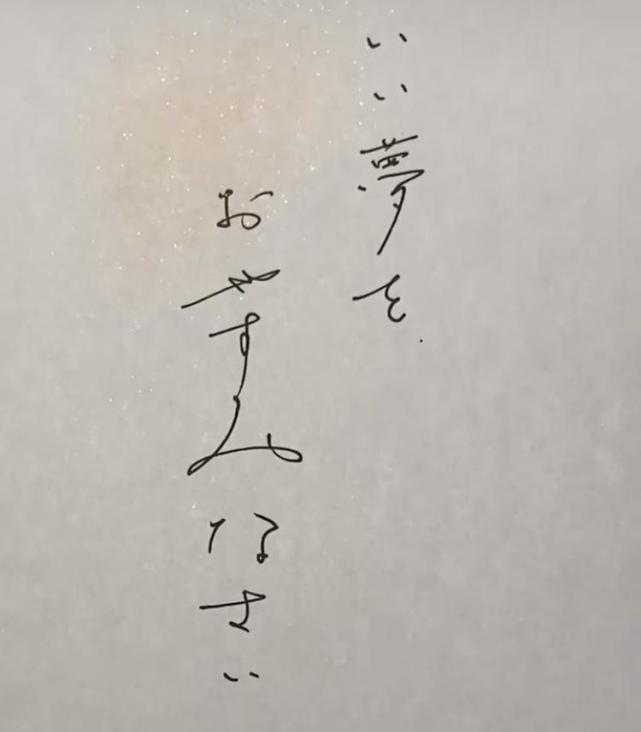 いい夢を
おやすみなさい